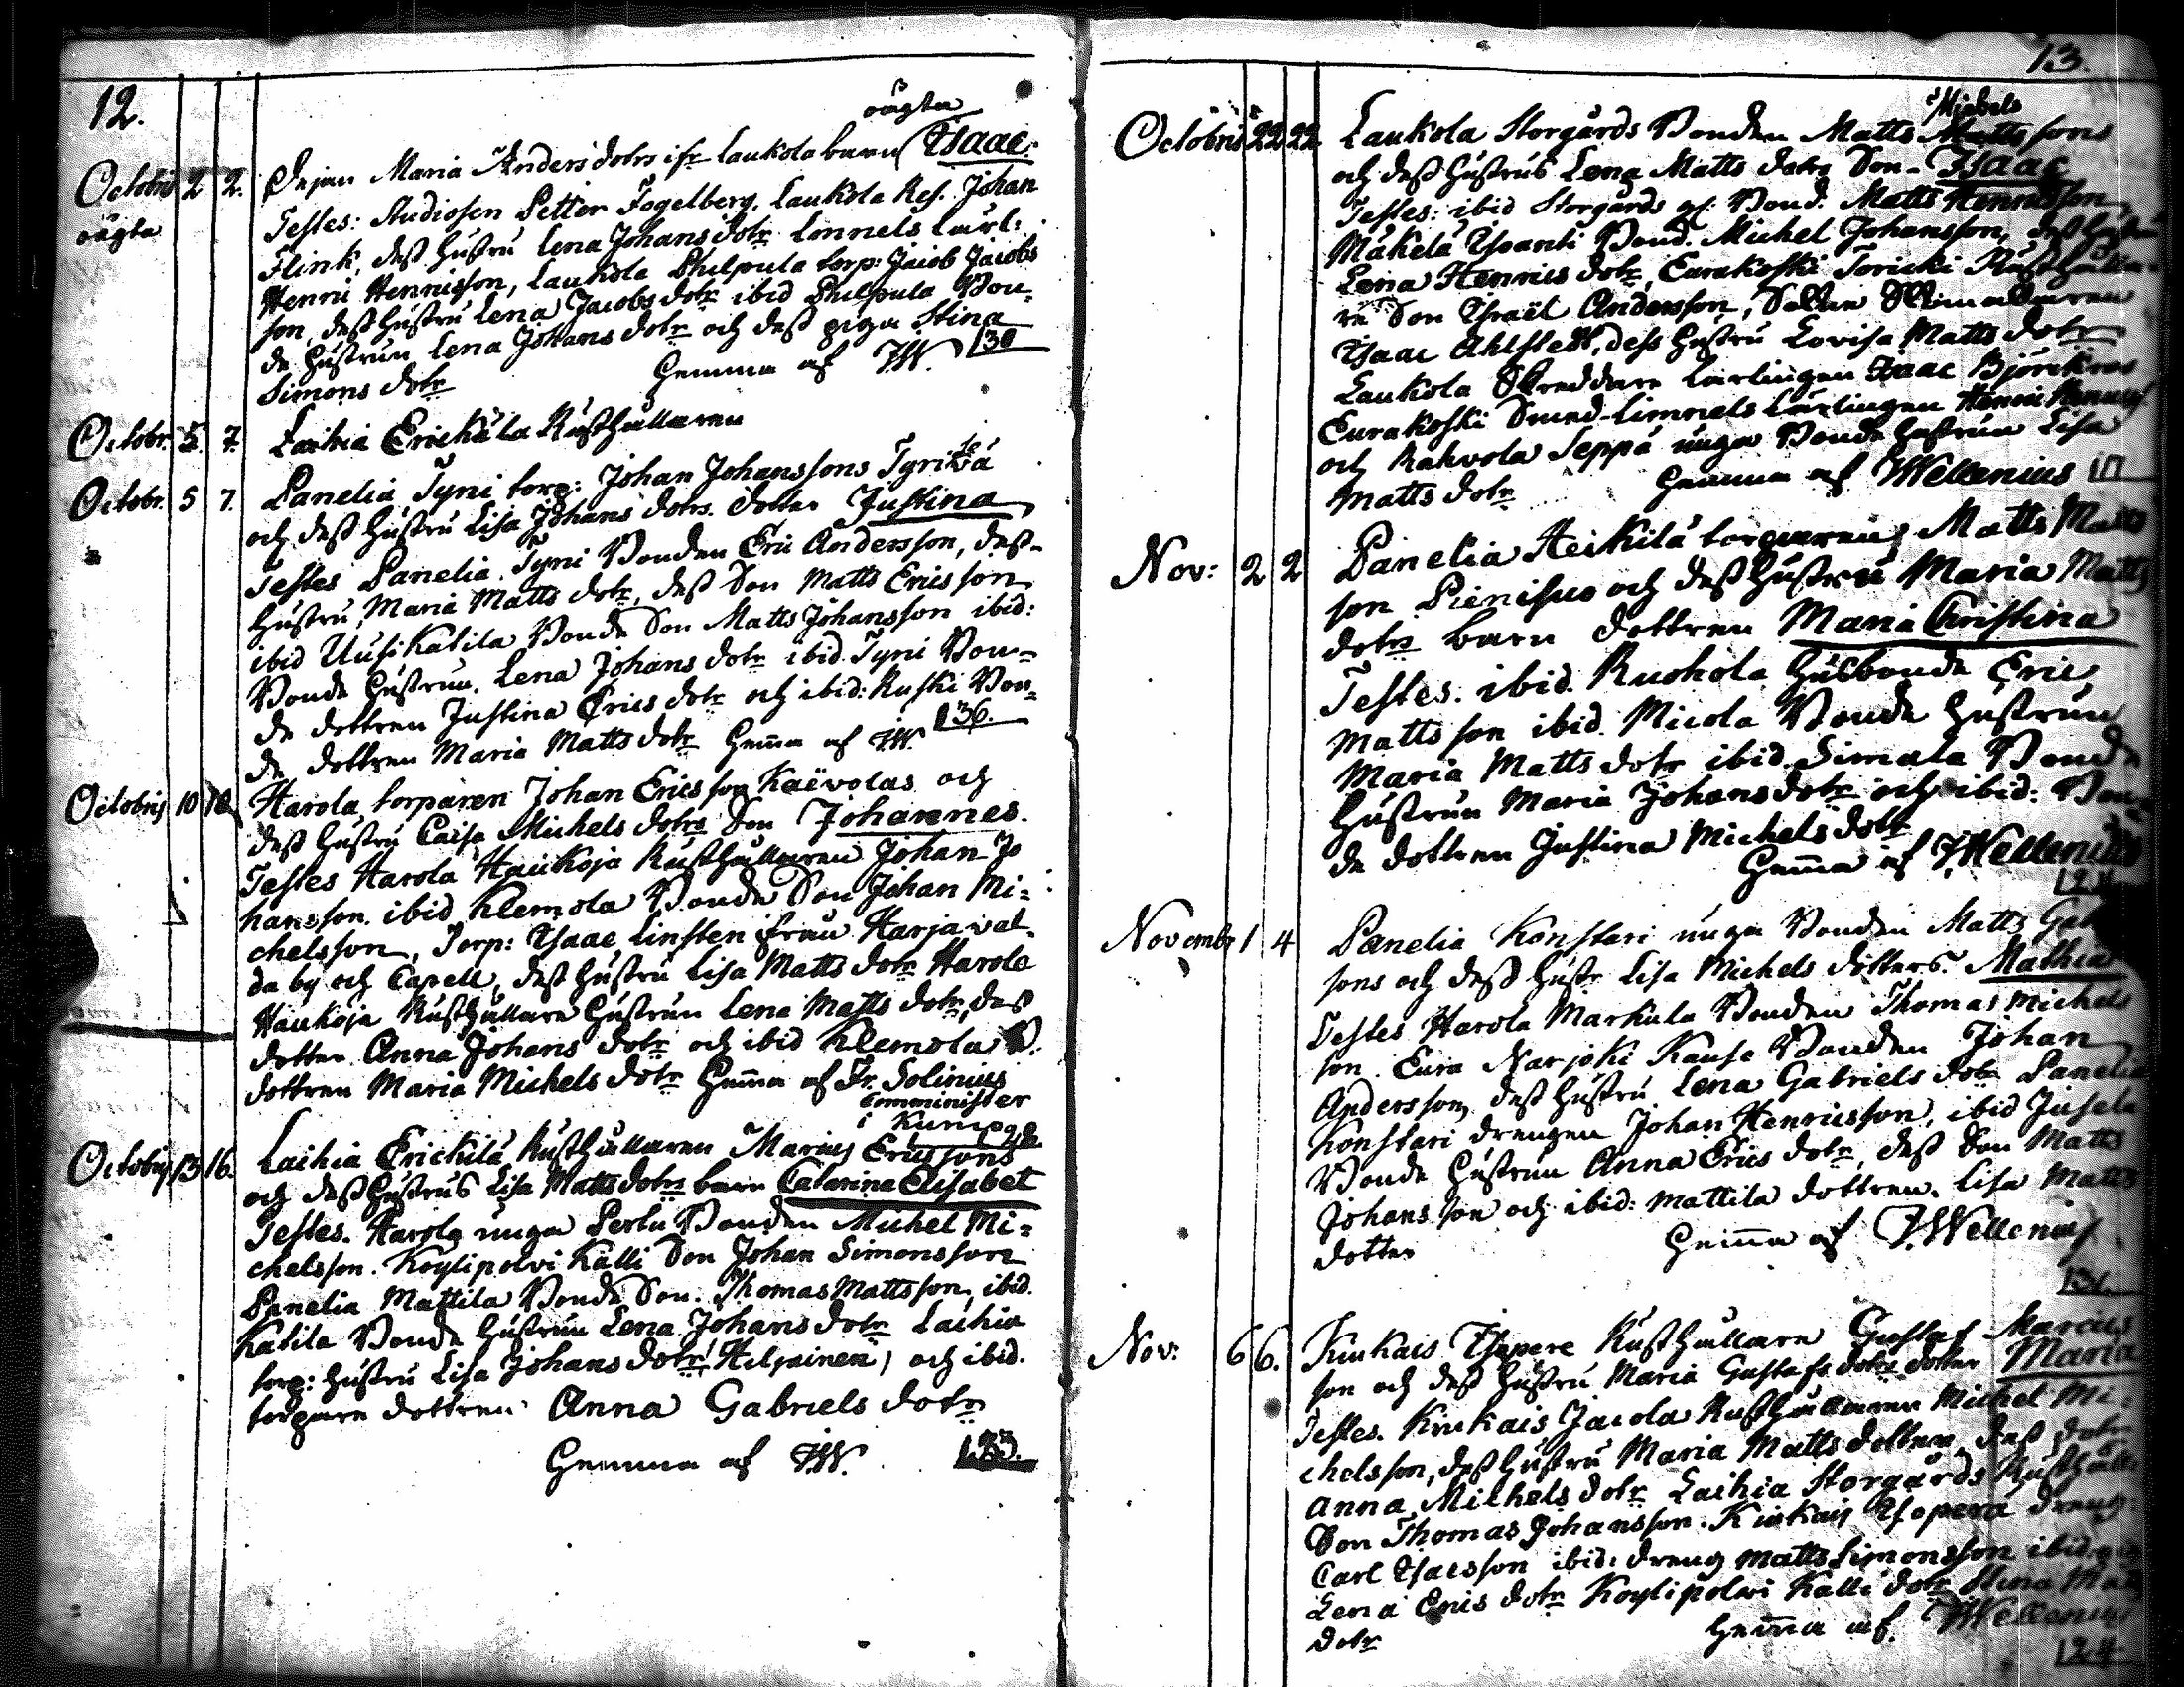 12.
oägta
Octobris 2 2. Pejan Maria Anders dotrs ifr Laukola barn Isaac.
oägta
Testes: Studiosen Petter Fogelberg, Laukola Ref. Johan
Flink, dess hustru Lena Johans dotr Lonnels Lärl:
Henric Henricsson, Laukola Philpula torp: Jacob Jacobs
son, dess hustru Lena Jacobs dotr ibid Philpula Bon-
de hustrun Lena Johans dotr och dess piga Stina
Simons dotr Hemma af JW. 30
Octobr. 5. 7. Laihia Erickälä Rusthållaren
Octobr. 5 7. Panelia Tyni torp: Johan Johanssons
och dess hustru Lisa Johans dotrs dotter Justina
Testes Panelia Tyni Bonden Eric Andersson, dess
hustru Maria Matts dotr, dess Son Matts Ericsson
ibid Uusikatila Bonde Son Matts Johansson ibid:
Bonde hustrun Lena Johans dotr ibid. Tyni Bon-
de dottren Justina Erics dotr och ibid: Ruski Bon-
de dottren Maria Matts dotr Hema af JW. 36.
Octobris 10 10. Harola torparen Johan Ericsson Kaëvolas och
dess hustru Caisa Michels dotrs Son Johannes.
Testes Harola Haukoja Rusthållaren Johan Jo
hansson. ibid Klemola Bonde Son Johan Mi-
chelsson, Torp: Isaac Linsten ifrån Harjaval-
da by och Capell, dess hustru Lisa Matts dotr Harola
Haukoja Rusthållare hustrun Lena Matts dotr, dess
dotter Anna Johans dotr och ibid Klemola B.
dottren Maria Michels dotr Hema af Fr. Solinius
Comminister
i Kumo
Octobris 13 16. Laihia Erickilä Rusthållaren Marcus Ericssons
och dess hustrus Lisa Matts dotrs barn Catarina Elisabet
Testes. Harola unga Perlu Bonden Michel Mi-
chelsson. Koylipolvi Källi Son Johan Simonsson
Panelia Mattila Bonde Son. Thomas Mattsson, ibid.
Katila Bonde hustrun Lena Johans dotr Laihia
torp: hustru Lisa Johans dotr (Hilpinen) och ibid.
torpare dottren Anna Gabriels dotr
Hemma af JW. 23.
13.
Michels
Octobris 22 22. Laukola Storgårds Bonden Matts sons
och dess hustrus Lena Matts dotrs Son - Isaac
Testes: ibid Storgårds gl. Bond. Matts Henricsson
Mäkelä Yvanti Bond. Michel Johansson, dess hustru
Lena Henrics dotr, Eurakoski Toricki Rusthålla-
re Son Israël Andersson,
Isaac Ahlstedt, dess hustru Lovisa Matts dotr
Laukola Skreddare Lärlingen Isaac Björckroos
Eurakoski Smed-Limnels Lärlingen Henric
och Kahvola Seppä unga Bonde hustrun Lisa
Matts dotr Hemma af JWellenius
Nov: 2 2 Panelia Heikilä torparens Matts Matts
son Pienihuo och dess hustru Maria Matts
dotrs barn dottren Maria Christina
Testes. ibid. Ruohola Husbonde Eric
Mattsson ibid. Micola Bonde hustrun
Maria Matts dotr ibid Simola Bonde
hustrun Maria Johans dotr och ibid: Bon-
de dottren Justina Michels dotr
Hema af JWellenius
Novembr 1 4 Panelia Konstari unga Bonden Matts
sons och dess hustr Lisa Michels dotters. Mathias
Testes Harola Markula Bonden Thomas Michels
son. Eura Narjoki Kause Bonden Johan
Andersson, dess hustru Lena Gabriels dotr Panelia
Konstari drengen Johan Henricsson, ibid Jusela
Bonde hustrun Anna Erics dotr, dess Son Matts
Johansson och ibid: Mattila dottren. Lisa Matts
dotter Hema af JWellenius
31.
Nov: 6 6. Kiukais Isopere Rusthållare Gustaf Marcus
son och dess hustru Maria Gustafs dotrs dotter Maria
Testes. Kiukais Jacola Rusthållaren Michel Mi-
chelsson, dess hustru Maria Matts dotter, dess dotr
Anna Michels dotr Laihia Storgårds Rusthåll-
Son Thomas Johansson. Kiukais Isopere dreng
Carl Isacsson ibid: dreng Matts Simonsson ibid.
Lena Erics dotr Koylipolvi Källi dotr Stina
dotr Hema af. JWellenius
24